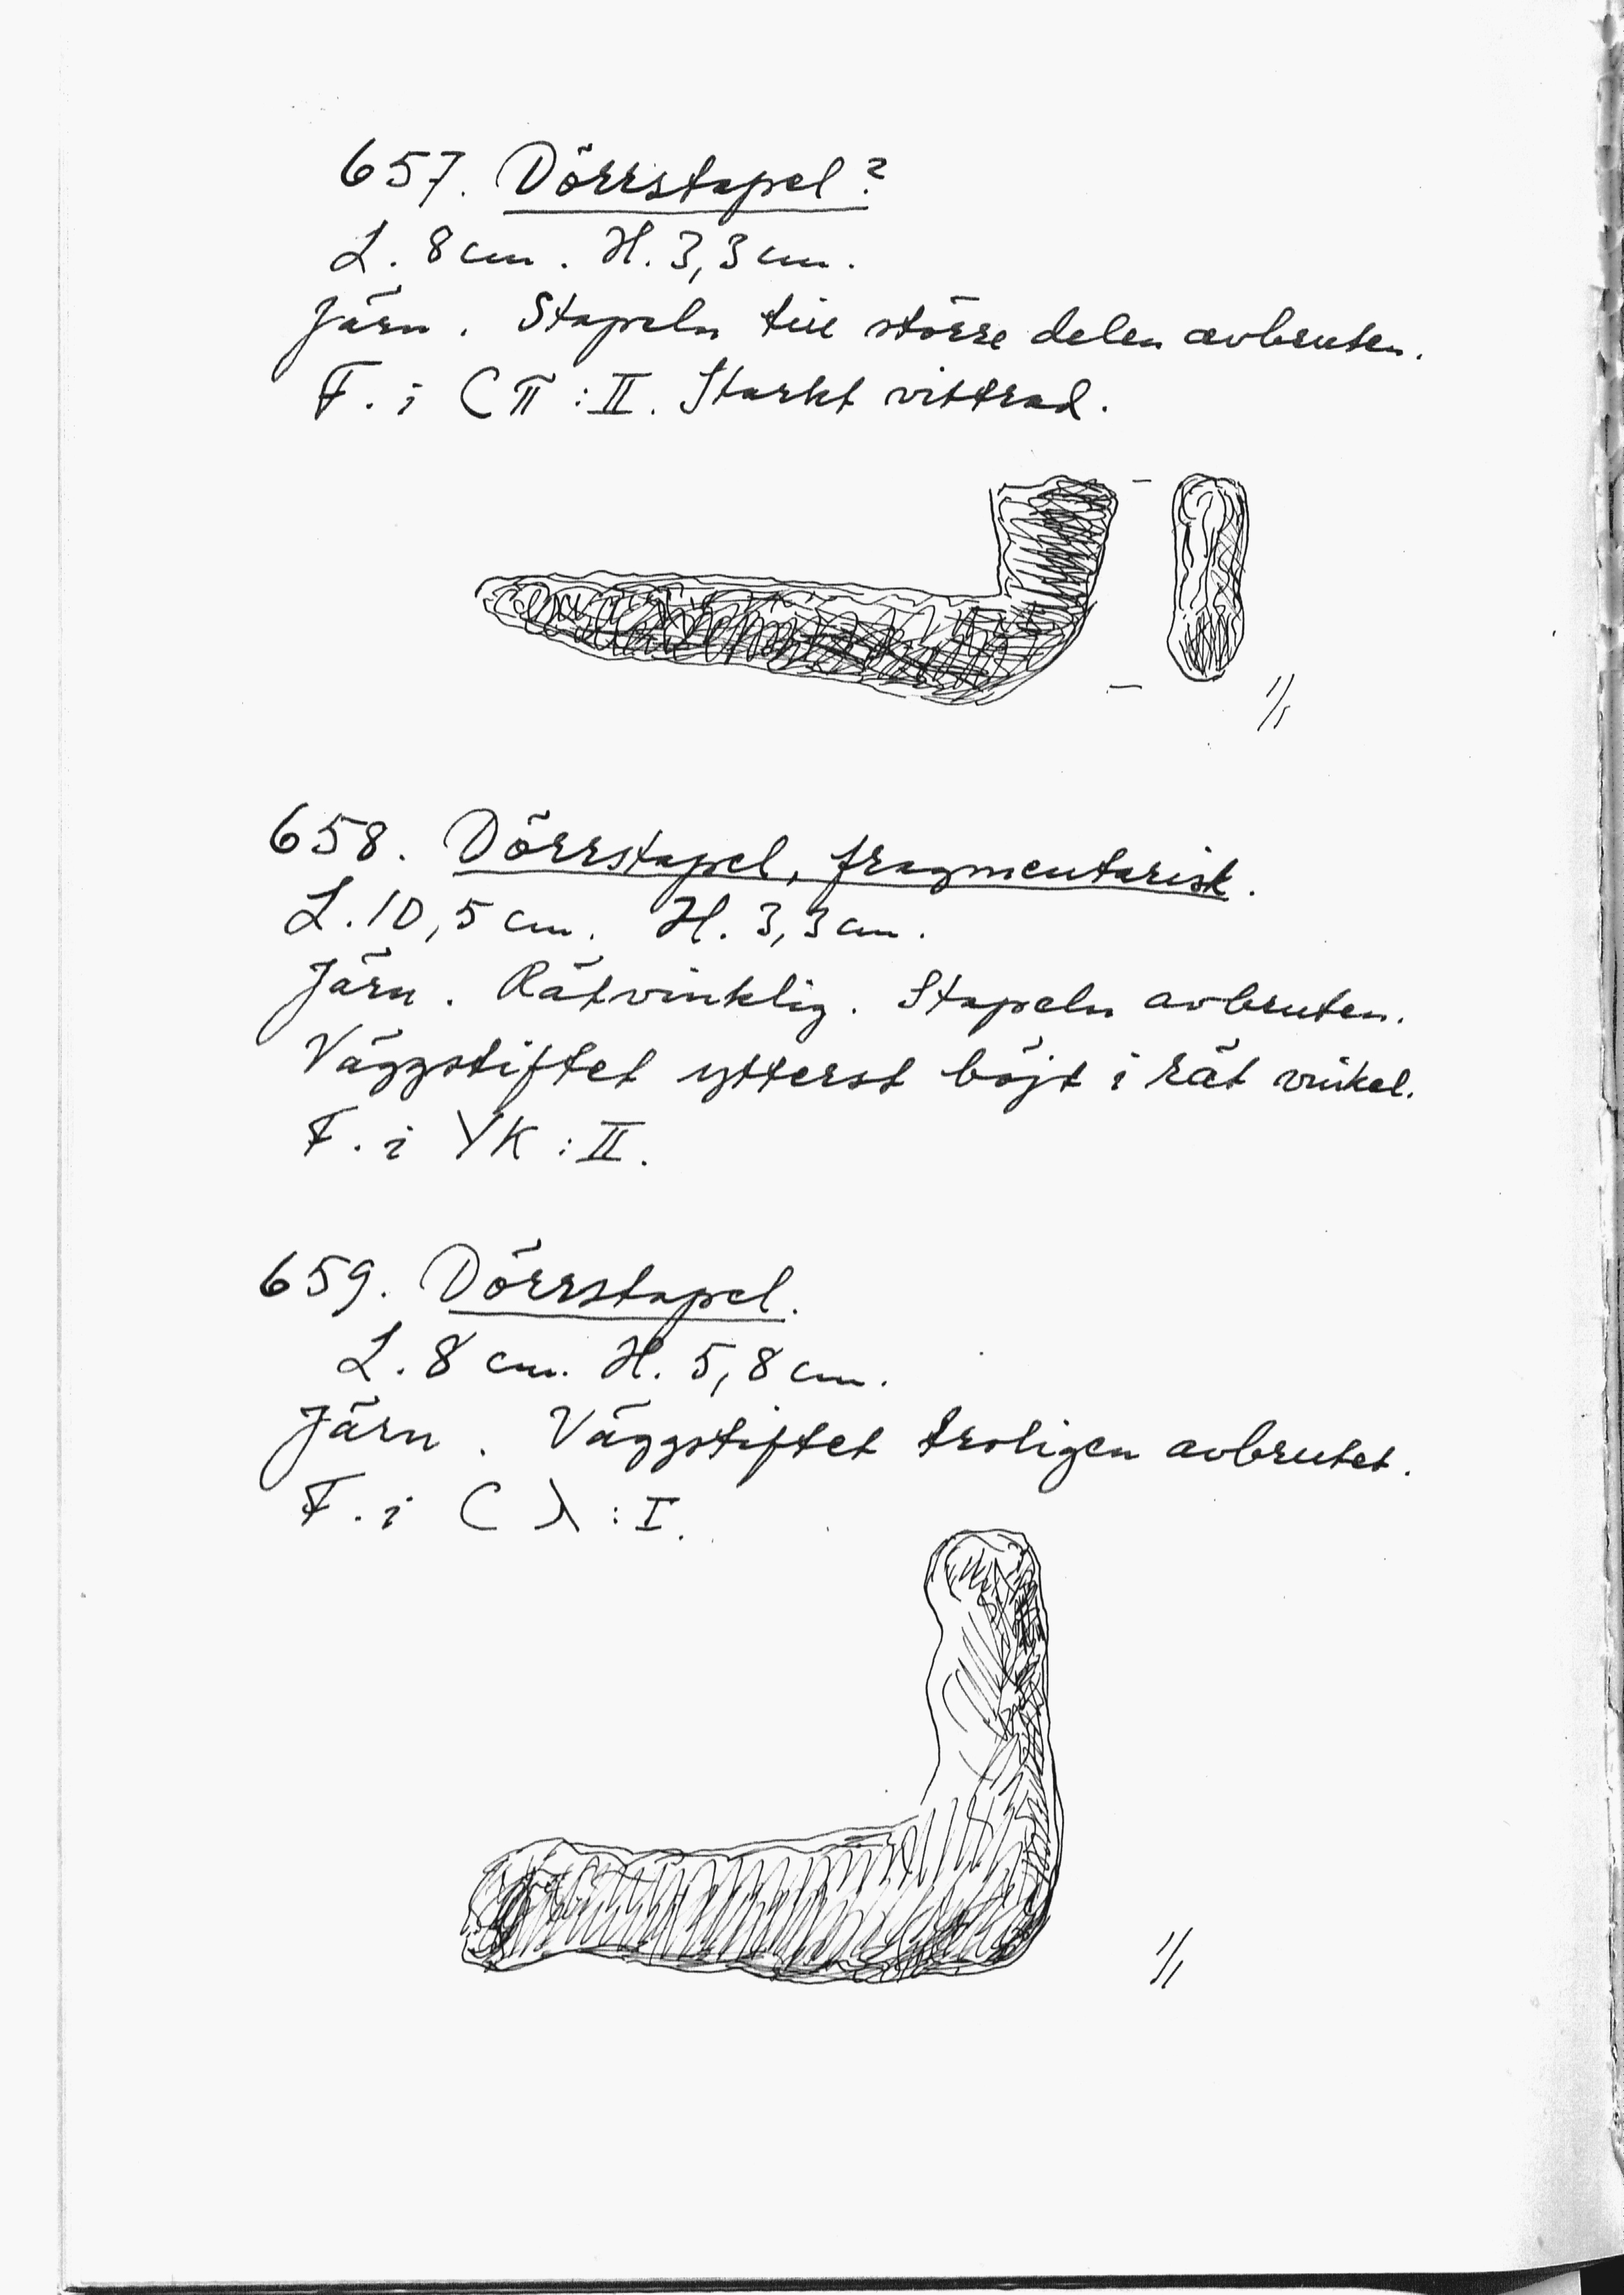 657. Dörrstapel?
L. 8 cm. H. 3,3 cm.
Järn. Stapeln till större delen avbruten.
F. i C π : II. Starkt vittrad.
1/1
658. Dörrstapel, fragmentarisk.
L. 10,5 cm. H. 3,3 cm.
Järn. Rätvinklig. Stapeln avbruten.
Väggstiftet ytterst böjt i rät vinkel.
F. i YK : II.
659. Dörrstapel.
L. 8 cm. H. 5,8 cm.
Järn. Väggstiftet troligen avbrutet.
F. i C λ : I.
1/1